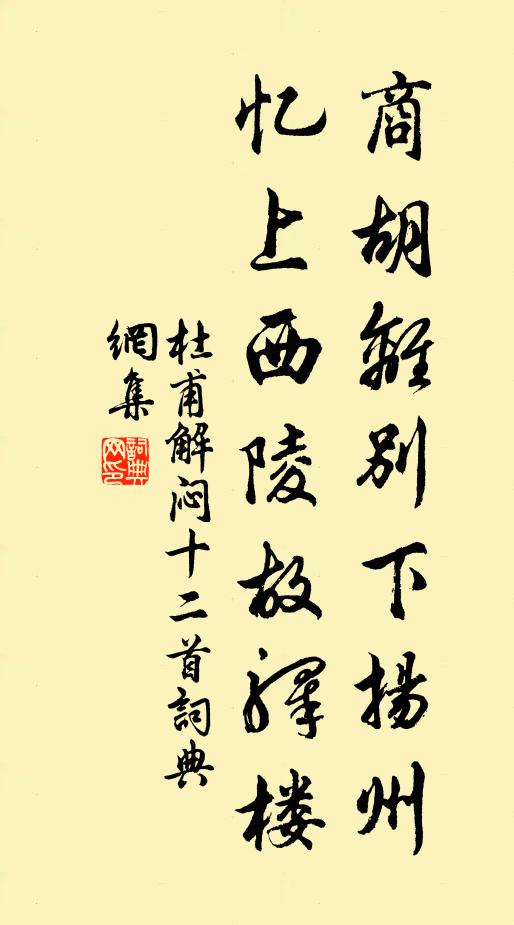 商胡離别下揚州
忆上西陵故驿楼
杜甫解闷十二首詞典
網集
詞典网印